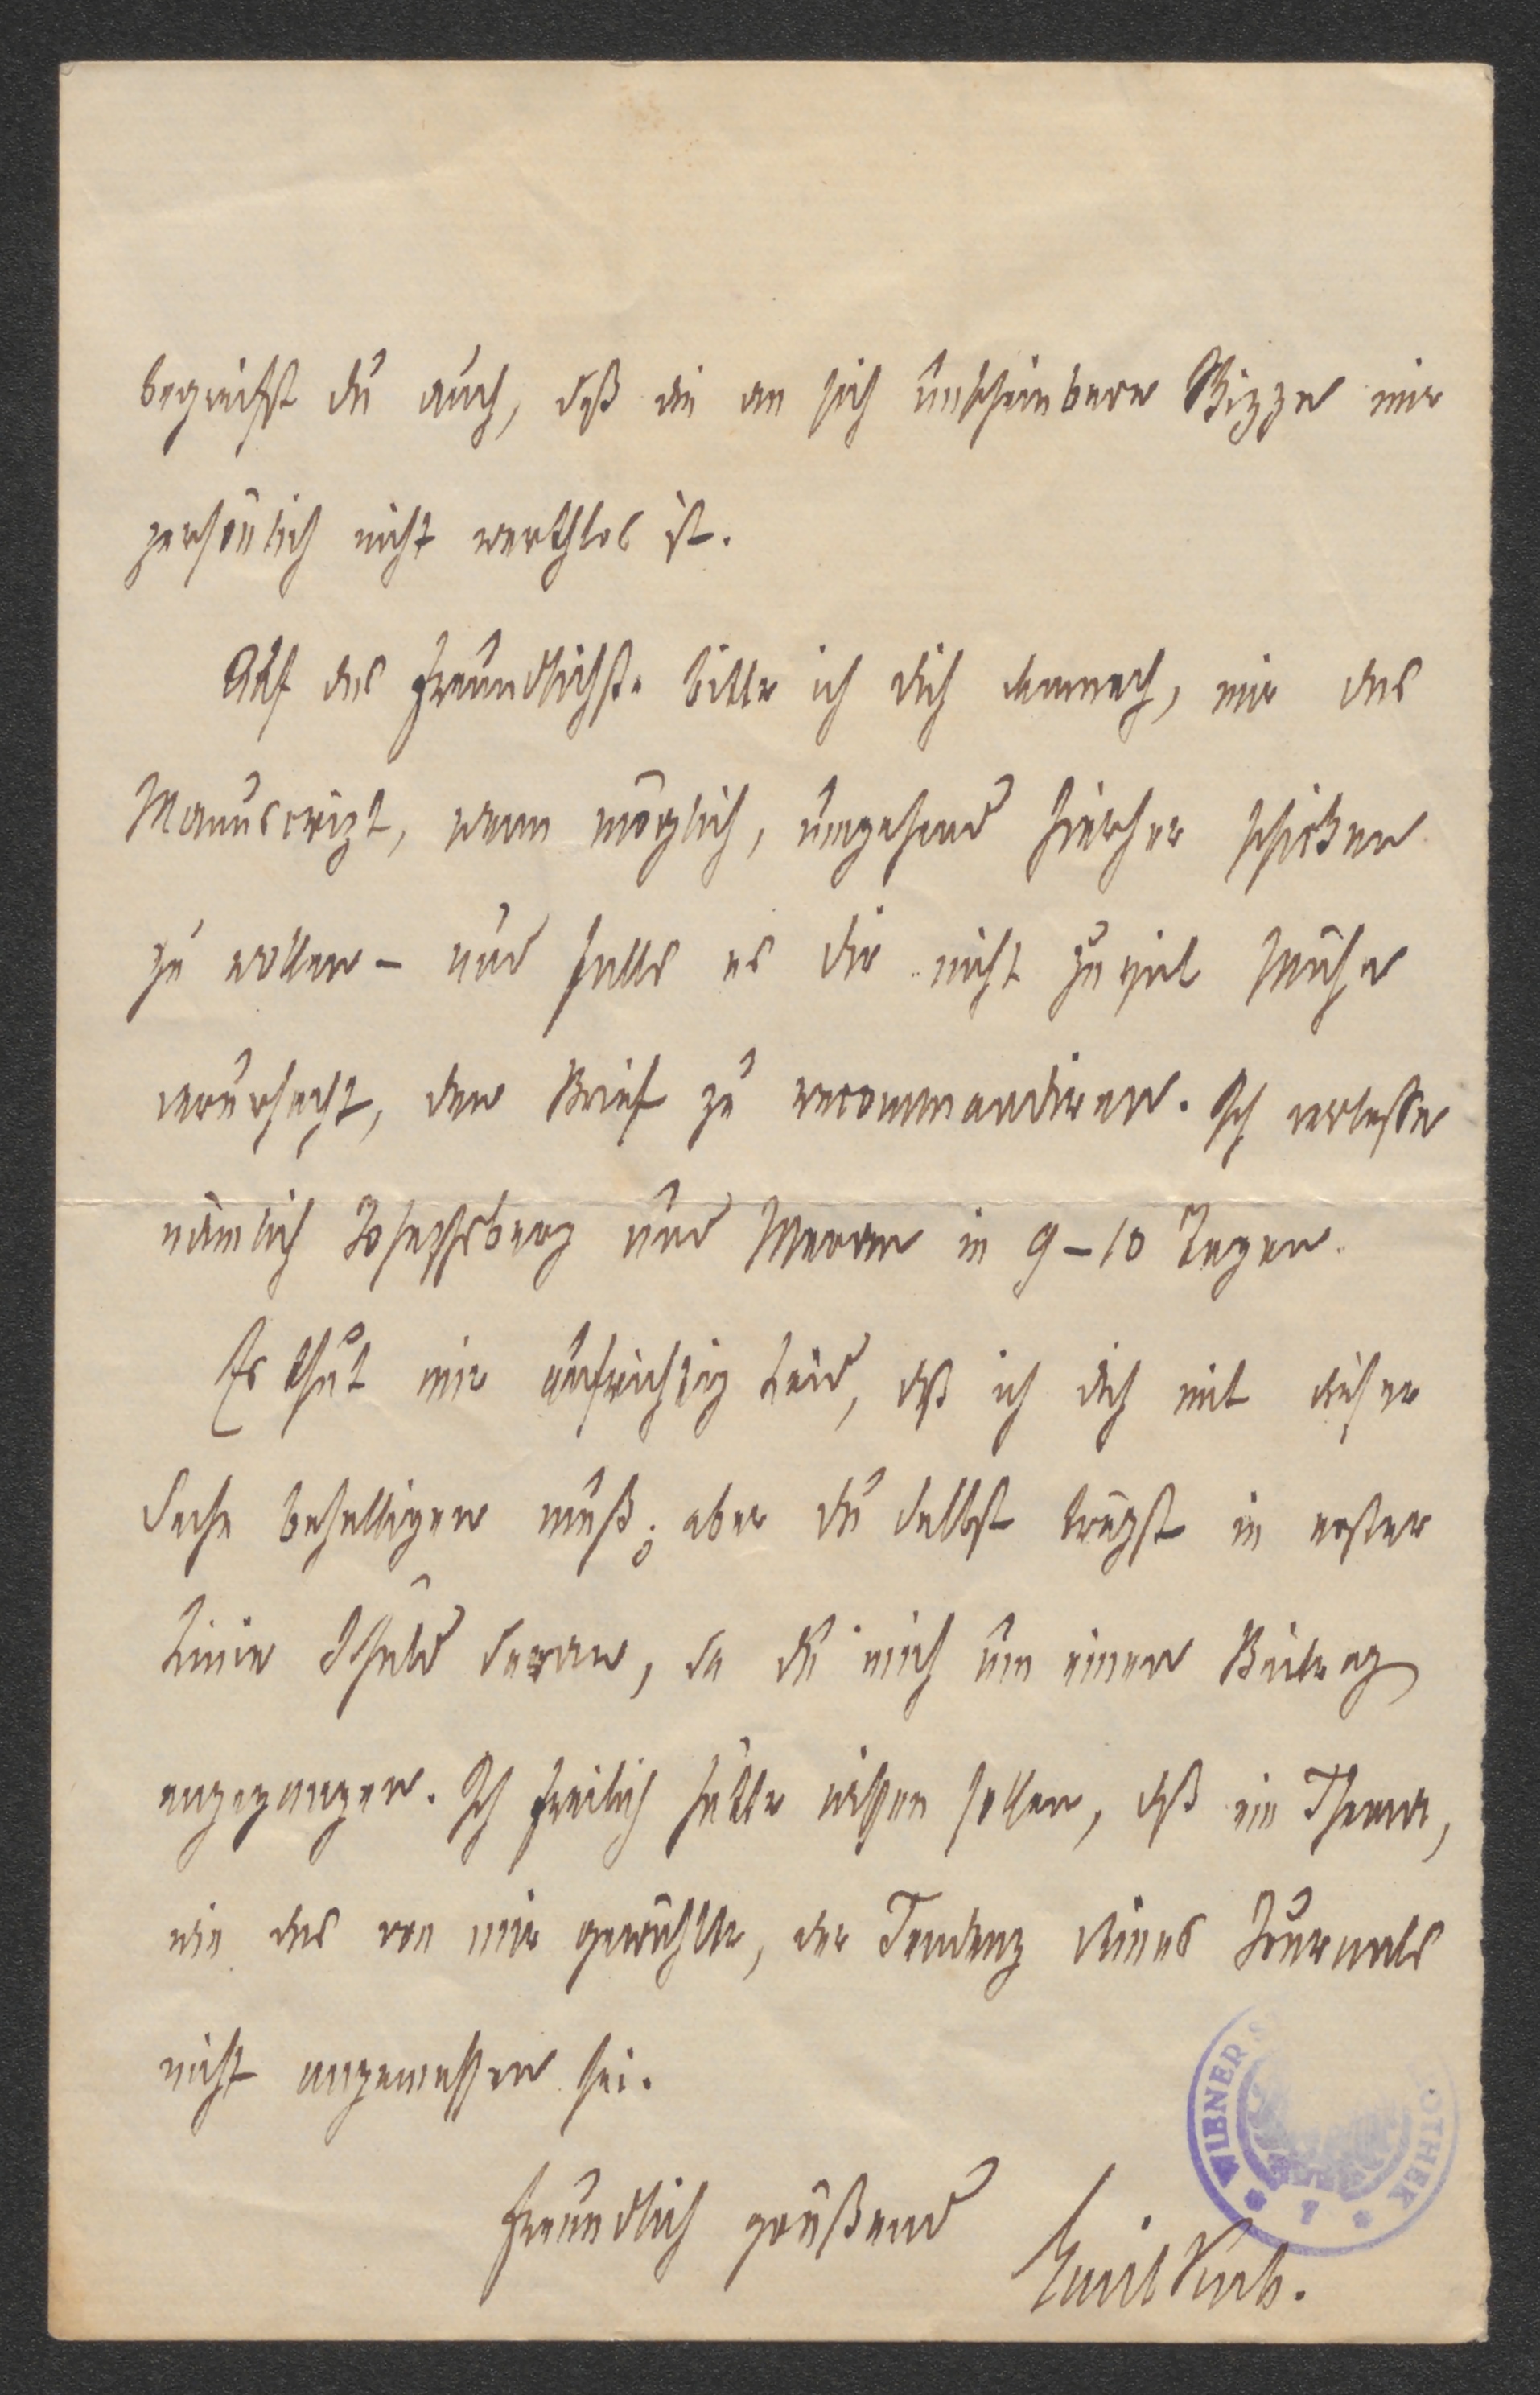 begreifst du auch, daß die an sich unscheinbare Skizze mir
persönlich nicht werthlos ist.
Auf das freundlichste bitte ich dich demnach, mir das
Manuscript, wenn möglich, umgehend hierher schicken
zu wollen – und falls es dir nicht zu viel Mühe
verursacht, den Brief zu recommandiren. Ich verlasse
nämlich Josephsberg und Meran in 9–10 Tagen.
Es thut mir aufrichtig Leid, daß ich dich mit dieser
Sache behelligen muß; aber du selbst trägst in erster
Linie Schuld daran, da du mich um einen Beitrag
angegangen. Ich freilich hätte wissen sollen, daß ein Thema,
wie das von mir gewählte, der Tendenz deines Journals
nicht angemessen sei.
freundlich grüßend
Emil Kuh.
WIBNER OTHEK